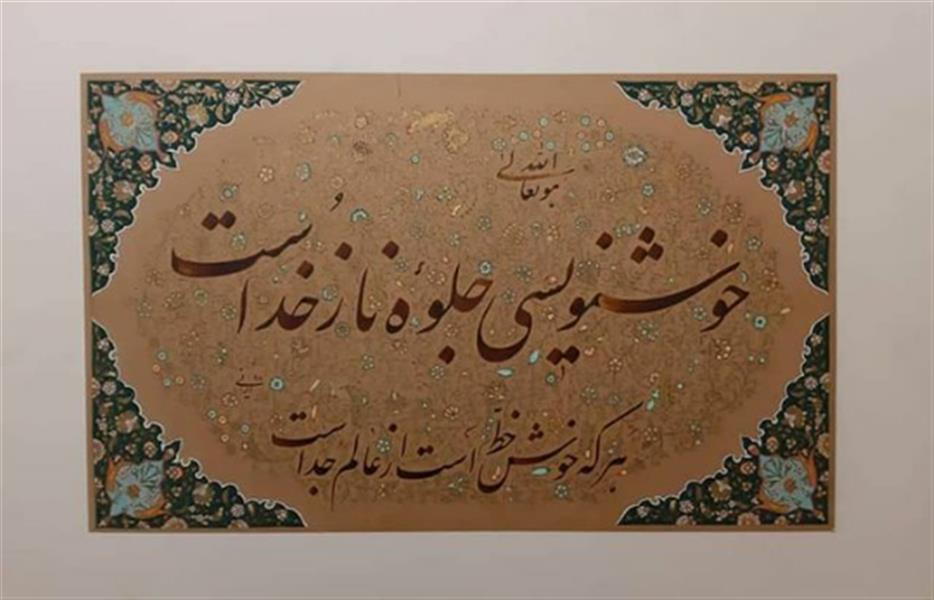 هو الله تعالی
خوشنویسی جلوهٔ ناز خُداست
هر که خوش خطّ است از عالم جداست